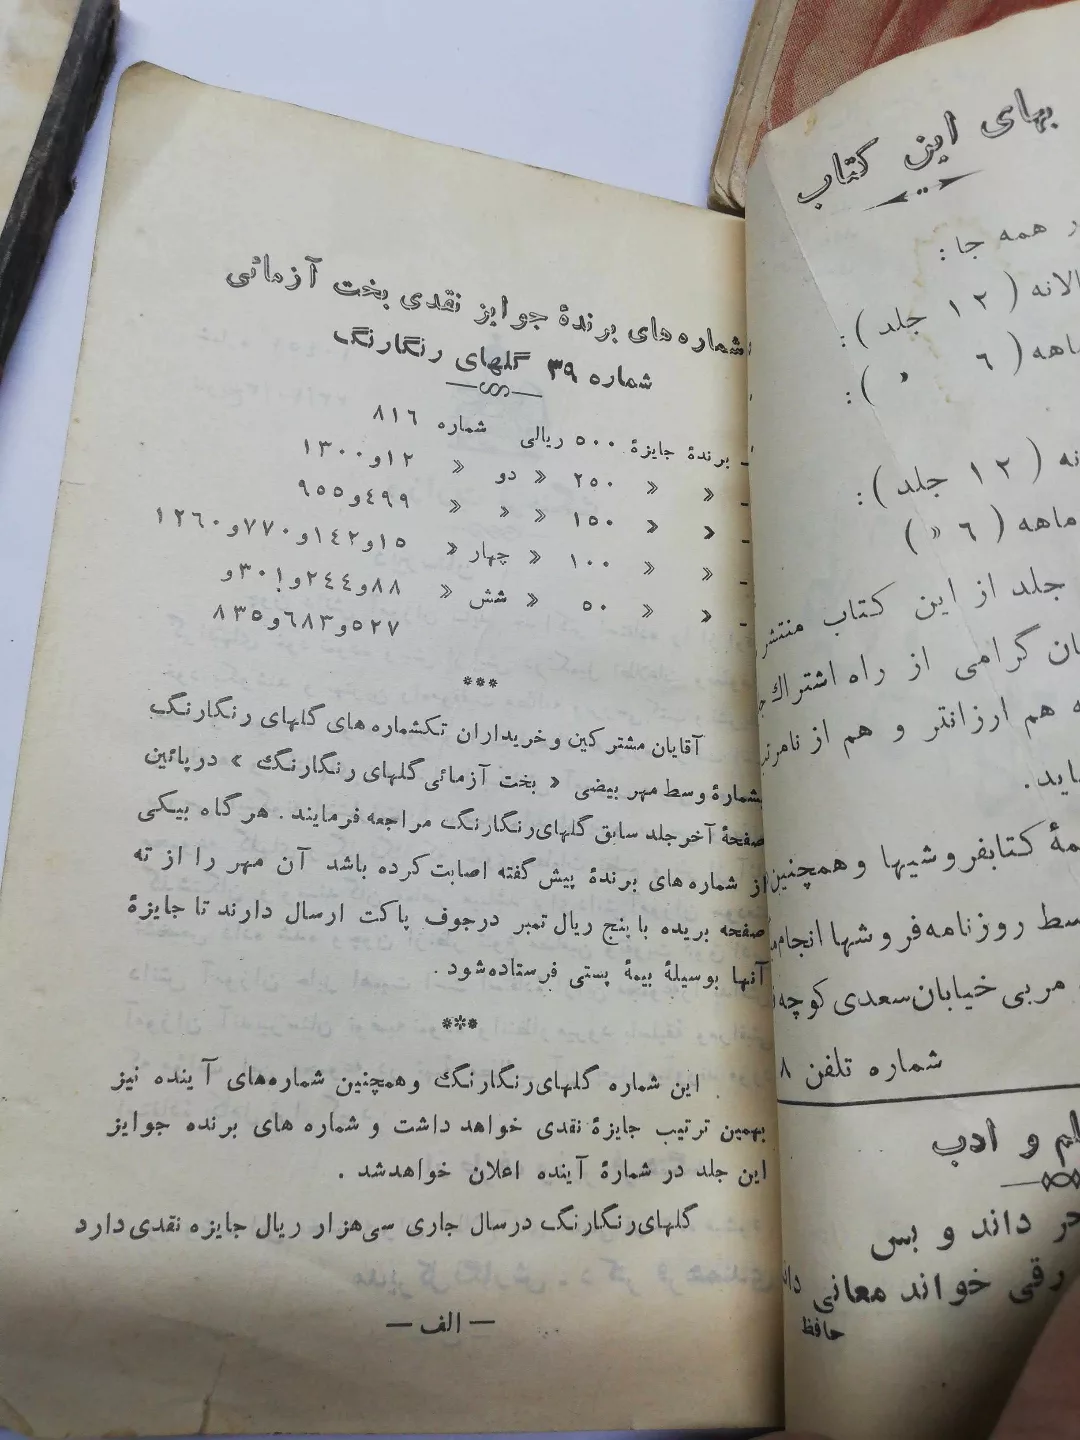 شماره‌های برندهٔ جوایز نقدی بخت آزمائی
شماره ۳۹ گلهای رنگارنگ
ـ برندهٔ جایزهٔ ۵۰۰ ریالی شماره ۸۱۶
ـ » » ۲۵۰ » دو » ۱۲و۱۳۰۰
ـ » » ۱۵۰ » » » ۴۹۹و۹۵۵
ـ » » ۱۰۰ » چهار » ۱۵و۱۴۲و۷۷۰و۱۲۶۰
ـ » » ۵۰ » شش » ۸۸و۲۴۴و۳۰۱و
۵۲۷و۶۸۳و۸۳۵
***
آقایان مشترکین و خریداران تکشماره های گلهای رنگارنگ
بشمارهٔ وسط مهر بیضی « بخت آزمائی گلهای رنگارنگ » در پائین
صفحهٔ آخر جلد سابق گلهای رنگارنگ مراجعه فرمایند. هرگاه بیکی
از شماره های برندهٔ پیش گفته اصابت کرده باشد آن مهر را از ته
صفحه بریده با پنج ریال تمبر درجوف پاکت ارسال دارند تا جایزهٔ
آنها بوسیلهٔ بیمهٔ پستی فرستاده شود .
***
این شماره گلهای رنگارنگ وهمچنین شماره‌های آینده نیز
بهمین ترتیب جایزهٔ نقدی خواهد داشت و شماره های برنده جوایز
این جلد در شمارهٔ آینده اعلان خواهدشد .
گلهای رنگارنگ درسال جاری سی‌هزار ریال جایزه نقدی دارد
— الف —
بهای این کتاب
همه جا :
( ۱۲ جلد ) :
( ۶ » ) :
( ۱۲ جلد ) :
ماهه ( ۶ » )
جلد از این کتاب
گرامی از راه اشتراك
هم ارزانتر و هم از
کتابفروشیها و همچنین
روزنامه‌فروشها
مربی خیابان سعدی کوچه
شماره تلفن ۸
و ادب
داند و بس
خواند معانی
حافظ